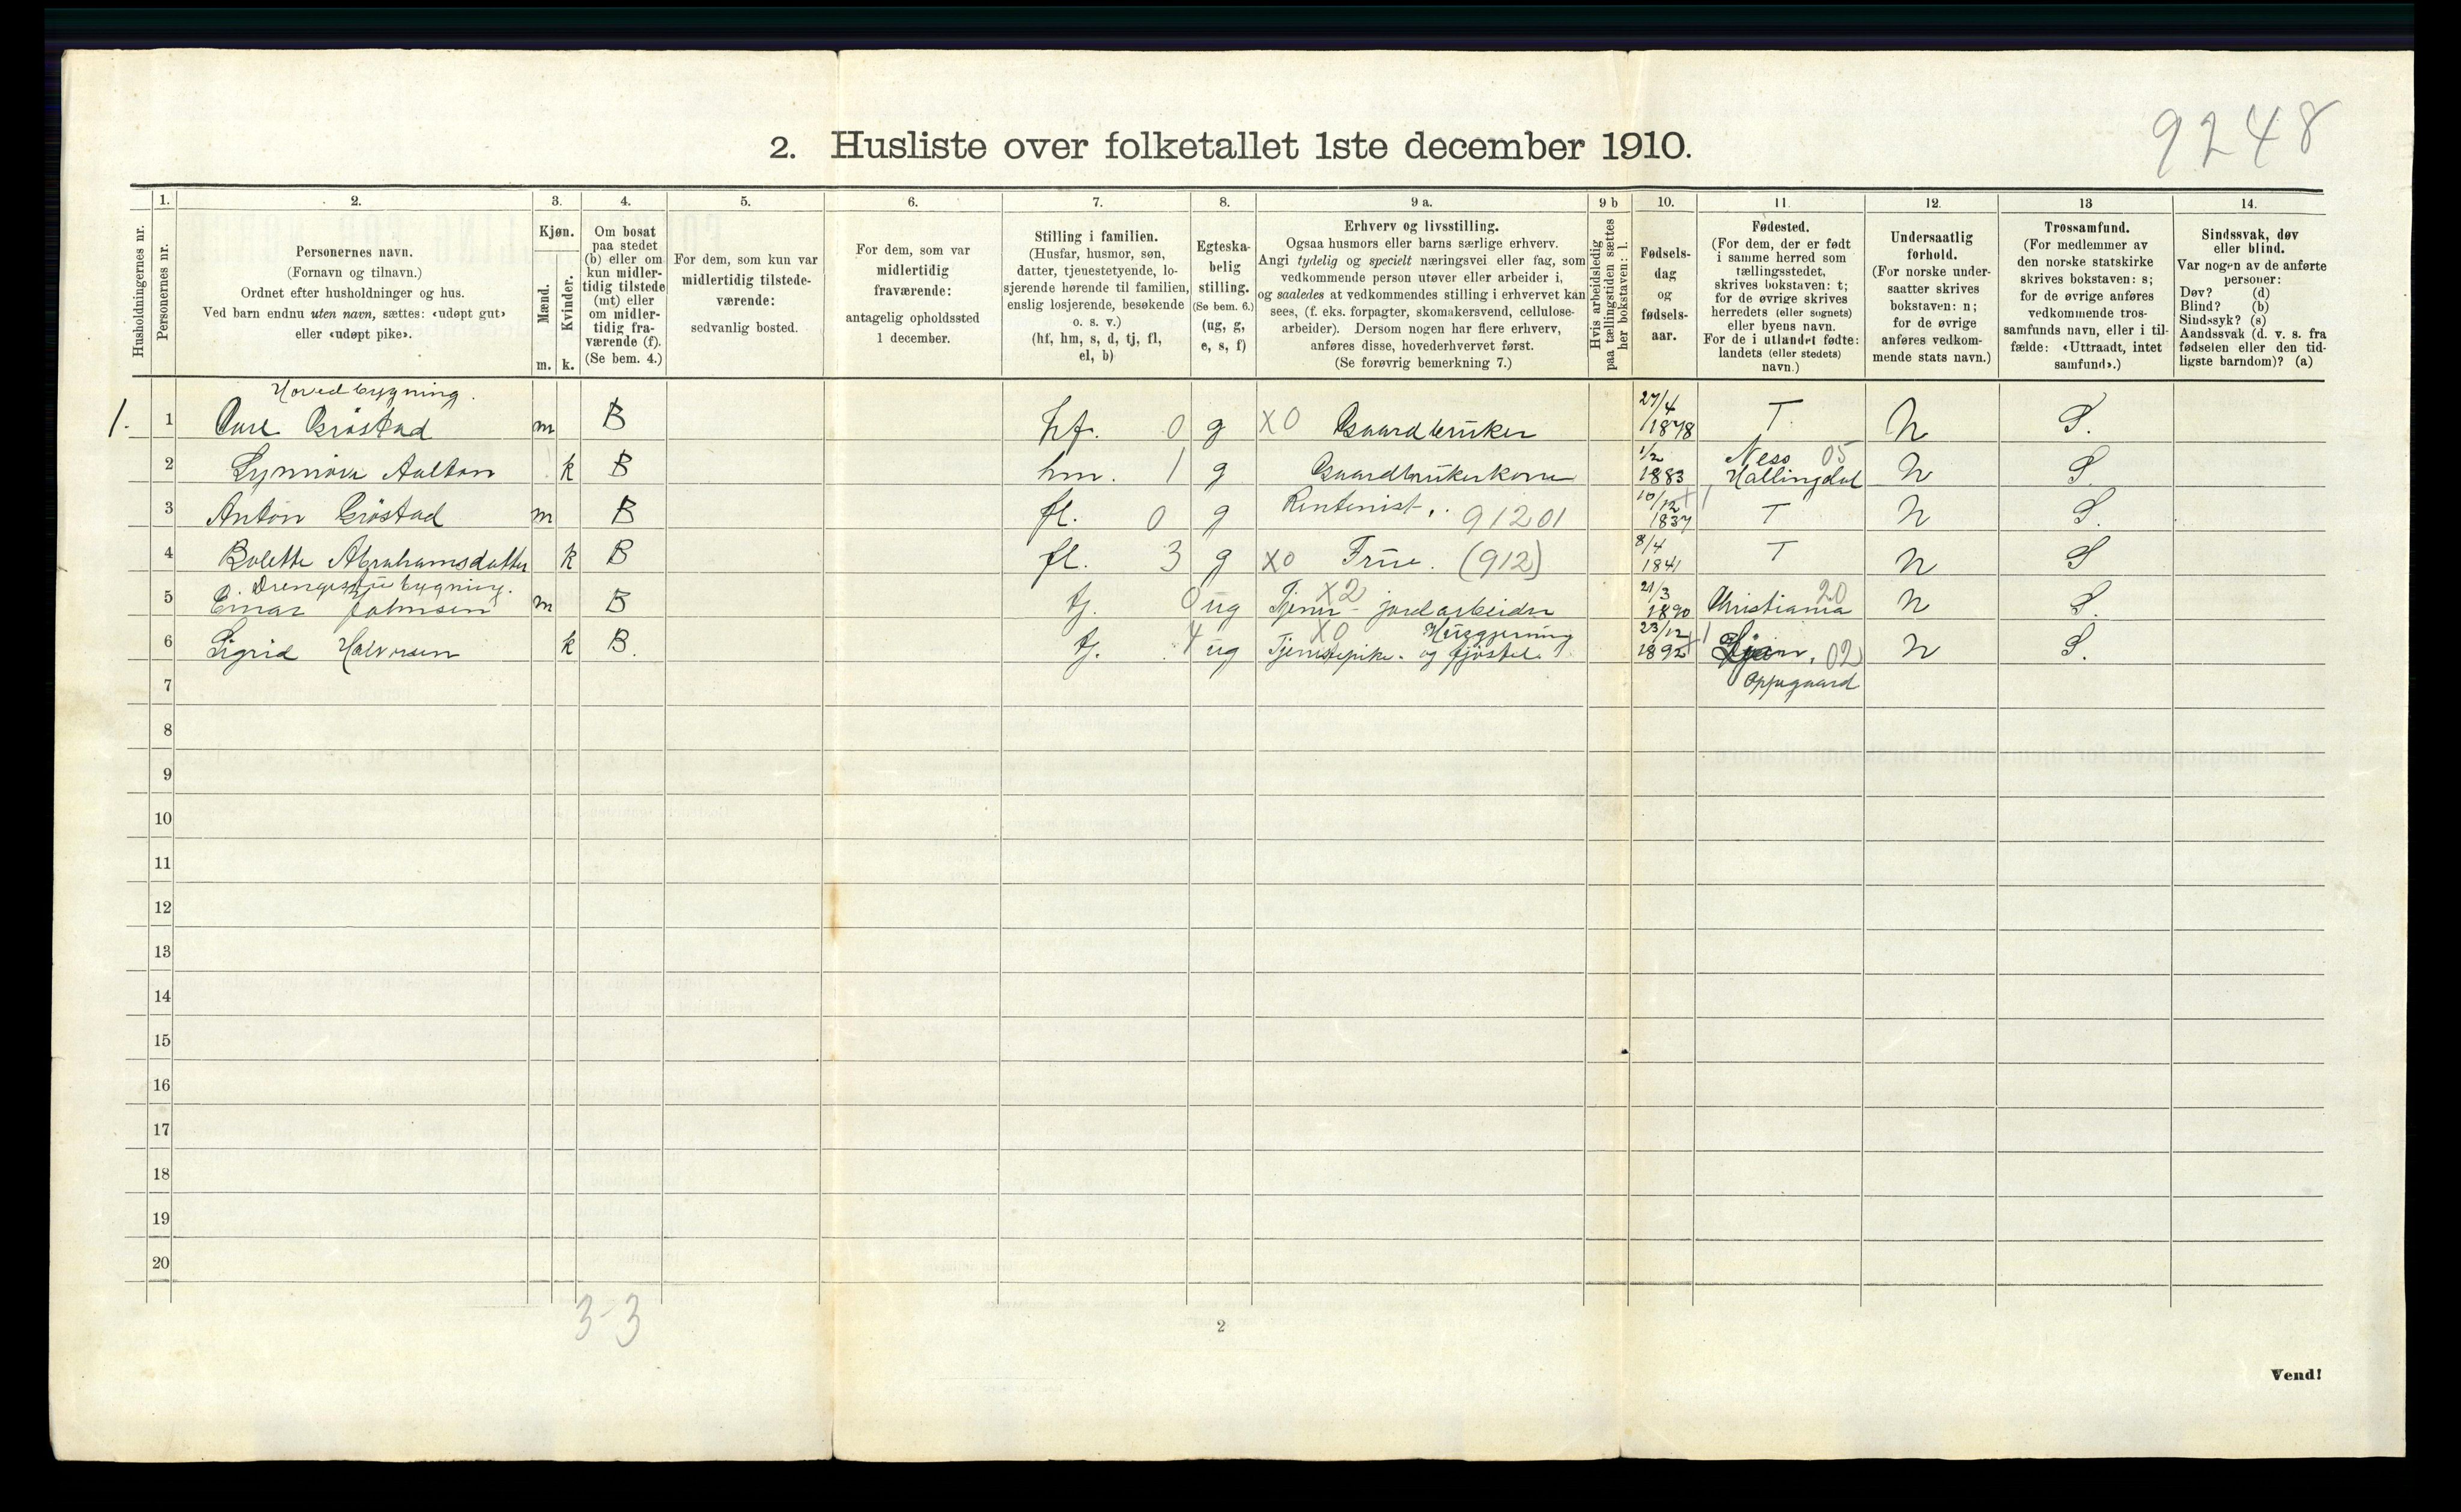 9248
2. Husliste over folketallet 1ste december 1910.
Husholdningernes nr.
1.
Personernes nr.
2.
Personernes navn.
(Fornavn og tilnavn.)
Ordnet efter husholdninger og hus.
Ved barn endnu uten navn, sættes: «udøpt gut»
eller «udøpt pike».
3.
Kjøn.
Mænd.
Kvinder.
m. k.
4.
Om bosat
paa stedet
(b) eller om
kun midler-
tidig tilstede
(mt) eller
om midler-
tidig fra-
værende (f).
(Se bem. 4.)
5.
For dem, som kun var
midlertidig tilstede-
værende:
sedvanlig bosted.
6.
For dem, som var
midlertidig
fraværende:
antagelig opholdssted
1 december.
7.
Stilling i familien.
(Husfar, husmor, søn,
datter, tjenestetyende, lo-
sjerende hørende til familien,
enslig losjerende, besøkende
o. s. v.)
(hf, hm, s, d, tj, fl,
el, b)
8.
Egteska-
belig
stilling.
(Se bem. 6.)
(ug, g,
e, s, f)
9 a.
Erhverv og livsstilling.
Ogsaa husmors eller barns særlige erhverv.
Angi tydelig og specielt næringsvei eller fag, som
vedkommende person utøver eller arbeider i,
og saaledes at vedkommendes stilling i erhvervet kan
sees, (f. eks. forpagter, skomakersvend, cellulose-
arbeider). Dersom nogen har flere erhverv,
anføres disse, hovederhvervet først.
(Se forøvrig bemerkning 7.)
9 b
Hvis arbeidsledig
paa tællingstiden sættes
her bokstaven: l.
10.
Fødsels-
dag
og
fødsels-
aar.
11.
Fødested.
(For dem, der er født
i samme herred som
tællingsstedet,
skrives bokstaven: t;
for de øvrige skrives
herredets (eller sognets)
eller byens navn.
For de i utlandet fødte:
landets (eller stedets)
navn.)
12.
Undersaatlig
forhold.
(For norske under-
saatter skrives
bokstaven: n;
for de øvrige
anføres vedkom-
mende stats navn.)
13
Trossamfund.
(For medlemmer av
den norske statskirke
skrives bokstaven: s;
for de øvrige anføres
vedkommende tros-
samfunds navn, eller i til-
fælde: «Uttraadt, intet
samfund».)
14.
Sindssvak, døv
eller blind.
Var nogen av de anførte
personer:
Døv? (d)
Blind? (b)
Sindssyk? (s)
Aandssvak (d. v. s. fra
fødselen eller den tid-
ligste barndom)? (a)
Hovedbygning.
1. 1 Grøstad m B hf. 0 g X0 Gaardbruker 27/4 1878 T. N S.
2 k B hm. 1 g Gaardbrukerkone 1/2 1883 Ness 05 Hallingdal N S.
3 Anton Grøstad m B fl. 0 g Rentenist. 91201 10/12 +1 1837 T N S.
4 Bolette Abrahamsdatter k B fl. 3 g X0 Frue. (912) 8/4 1841 T N S
Drengestubygning.
5 Einar Johnsen m B tj. 0 ug X2 Tjener - jordarbeider 21/3 1890 Christiania 20 N S.
6 Sigrid Halvorsen k B. tj. 4 ug X0 Tjenestepike. Husgjerning og fjøsstel. 23/12 +1 1892 02 N S.
7 Oppegaard
8
9
10
11
12
13
14
15
16
17
18
19
20
3-3
2
Vend!